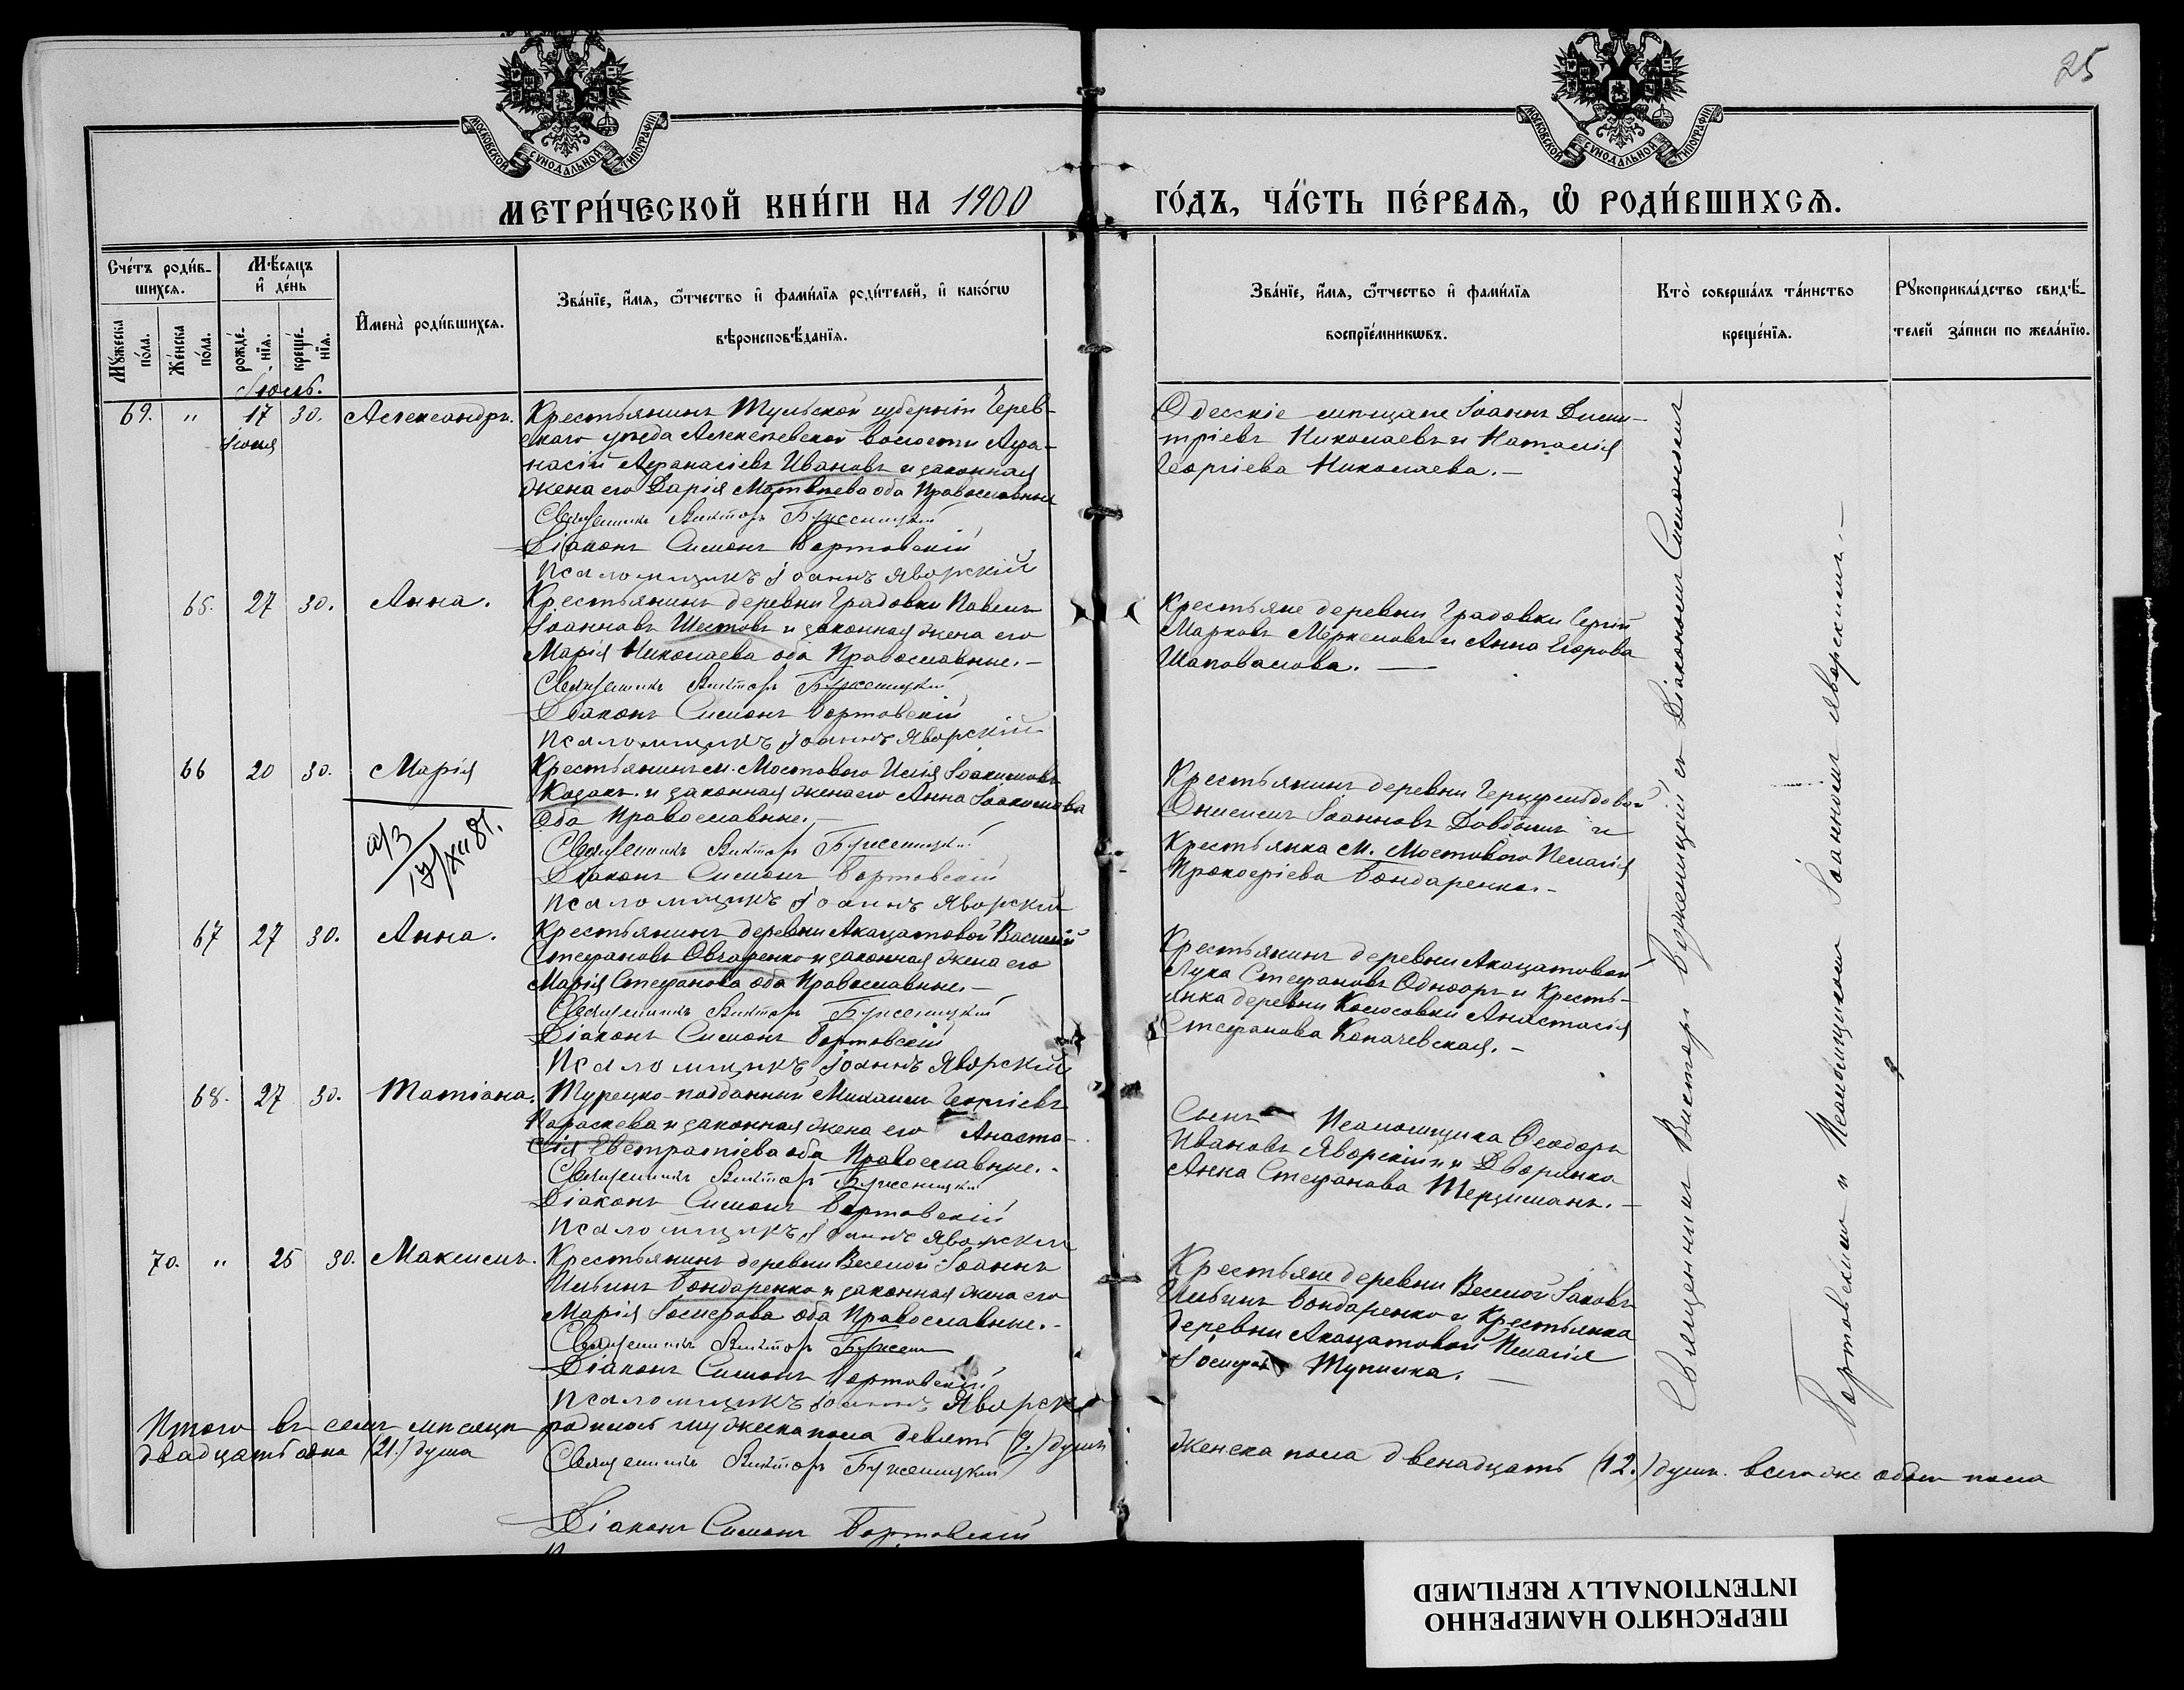 25
МОСКОВСКОЙ СУНОДАЛЬНОЙ ТИПОГРАФІИ
МОСКОВСКОЙ СУНОДАЛЬНОЙ ТИПОГРАФІИ
МЕТРИ́ЧЕСКОЙ КНИ́ГИ НА 1900 ГО́ДЪ, ЧА́СТЬ ПЕ́РВАѦ, Ѡ РОДИ́ВШИХСѦ.
Сче́тъ роди́вшихсѧ.
Мꙋжеска по́ла.
Же́нска по́ла.
Мѣ́сѧцъ и де́нь
рожде́нїѧ.
креще́нїѧ.
Имена̀ роди́вшихсѧ.
Зва́нїе, и́мѧ, ѻ́тчество и фами́лїѧ роди́телей, и како́гѡ
вѣроисповѣ́данїѧ.
Зва́нїе, и́мѧ, ѻ́тчество и фами́лїѧ
воспрїе́мникѡвъ.
Кто̀ соверша́лъ та́инство
креще́нїѧ.
Рꙋкоприкла́дство свидѣ́-
телей за́писи по жела́нїю.
Іюль.
69. " 17 30. Александръ.
Іюня
Крестьянинъ Тульской губерніи Черев-
скаго уѣзда Алексѣевской волости Афа-
насій Афанасіевъ Ивановъ и законная
жена его Дарія Матвѣева оба Православные
Священникъ Викторъ Буженицкій
Діаконъ Симонъ Бортовскій
Псаломщикъ Іоаннъ Яворскій
Одесскіе мѣщане Іоаннъ Дими-
тріевъ Николаевъ и Наталія
Георгіева Николаева.-
65. 27 30. Анна.
Крестьянинъ деревни Градовки Павелъ
Іоанновъ Шестовъ и законная жена его
Марія Николаева оба Православные.-
Священникъ Викторъ Буженицкій
Діаконъ Симонъ Бортовскій
Псаломщикъ Іоаннъ Яворскій
Крестьяне деревни Градовки Сергій
Марковъ Меркеловъ и Анна Егорова
Шаповалова.
66 20 30. Марія
Крестьянинъ м. Мостового Илія Іоакимовъ
Козакъ и законная жена его Анна Іоакимова
Оба Православные.-
Священникъ Викторъ Буженицкій
Діаконъ Симонъ Бортовскій
Псаломщикъ Іоаннъ Яворскій
Крестьянинъ деревни
Онисимъ Іоанновъ и
Крестьянка м. Мостового Пелагія
Прокофіева Бондаренко.-
67 27 30. Анна.
Крестьянинъ деревни Акацатовой Василій
Стефановъ Овчаренко и законная жена его
Марія Стефанова оба Православные.-
Священникъ Викторъ Буженицкій
Діаконъ Симонъ Бортовскій
Псаломщикъ Іоаннъ Яворскій
Крестьянинъ деревни Акацатовой
Лука Стефановъ и Кресть-
янка деревни Колосовки Анастасія
Стефанова Копачевская.-
68. 27 30. Татіана.
Турецко-подданный Михаилъ Георгіевъ
Параскева и законная жена его Анаста-
сія Евстратіева оба Православные.-
Священникъ Викторъ Буженицкій
Діаконъ Симонъ Бортовскій
Псаломщикъ Іоаннъ Яворскій
Сынъ Псаломщика Ѳеодоръ
Ивановъ Яворскій и Дворянка
Анна Стефанова Терциманъ.-
70. " 25 30. Максимъ.
Крестьянинъ деревни Веселой Іоаннъ
Ильинъ Бондаренко и законная жена его
Марія Іосифова оба Православные.-
Священникъ Викторъ
Діаконъ Симонъ Бортовскій
Псаломщикъ Іоаннъ Яворск
Крестьяне деревни Веселой Іаковъ
Ильинъ Бондаренко и Крестьянка
деревни Акацатовой Пелагія
Тупиика.
Священникъ Викторъ Буженицкій съ Діакономъ Симономъ
Бортовскимъ и Псаломщикомъ Іоанномъ Яворскимъ.-
Итого въ семъ мѣсяцѣ родилось мужеска пола девять (9.) душъ женска пола двенадцать (12.) душъ. всего же обоего пола
двадцать одна (21.) душа
Священникъ Викторъ Буженицкій
Діаконъ Симонъ Бортовскій
ПЕРЕСНЯТО НАМЕРЕННО
INTENTIONALLY REFILMED